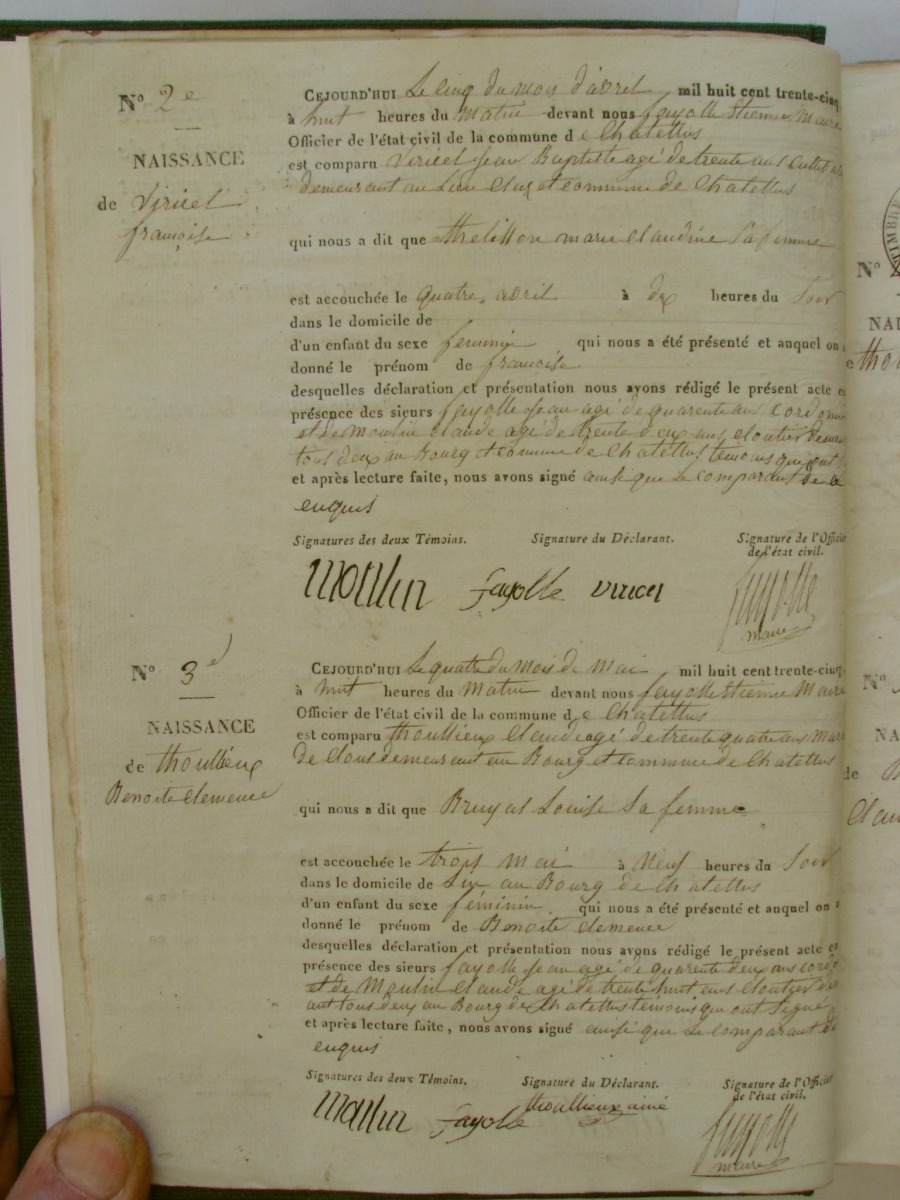 N° 2e
NAISSANCE
de Viricel
françoise
CEJOURD'HUI Le cinq du mois d'avril mil huit cent trente-cinq
à huit heures du Matin devant nous fayolle Etienne Maire
Officier de l'état civil de la commune de Chatellus
est comparu Viricel Jean Baptiste agé de trente ans
demeurant au Lieu Cluz et commune de Chatellus
qui nous a dit que thelisson marie claudine Sa femme
est accouchée le quatre avril à dix heures du Soir
dans le domicile de
d'un enfant du sexe feminin qui nous a été présenté et auquel on
donné le prénom de françoise
desquelles déclaration et présentation nous avons rédigé le présent acte e
présence des sieurs fayolle Jean agé de quarente ans cordonni
et de Moulin claude agé de trente deux ans cloutier deme
tous deux au Bourg et commune de Chatellus temoins qui ont
et après lecture faite, nous avons signé ainsi que Le comparant de ce
enquis
Signatures des deux Témoins. Signature du Déclarant. Signature de l'Officie
de l'état civil.
Moulin fayolle viricel fayolle
maire
N° 3e
NAISSANCE
de thoullieux
Benoite clemence
CEJOURD'HUI Le quatre du Mois de Mai mil huit cent trente-cinq
à huit heures du Matin devant nous fayolle Etienne Maire
Officier de l'état civil de la commune de Chatellus
est comparu thoullieux Claude agé de trente quatre ans Mar
de Clous demeurant au Bourg et commune de Chatellus
qui nous a dit que Bruyas Louise Sa femme
est accouchée le trois mai à Neuf heures du Soir
dans le domicile de Lui au Bourg de Chatellus
d'un enfant du sexe féminin qui nous a été présenté et auquel on a
donné le prénom de Benoite clemence
desquelles déclaration et présentation nous avons rédigé le présent acte en
présence des sieurs fayolle Jean agé de quarente deux ans cord
et de Moulin claude agé de trente huit ans cloutier de
ant tous deux au Bourg de Chatellus temoins qui ont Signé
et après lecture faite, nous avons signé ainsi que Le comparant de
enquis
Signatures des deux Témoins. Signature du Déclarant. Signature de l'Officier
de l'état civil.
Moulin fayolle thoullieux ainé fayolle
maire
TIMBRE
N°
NAI
e tho
N°
NA
de
Clau